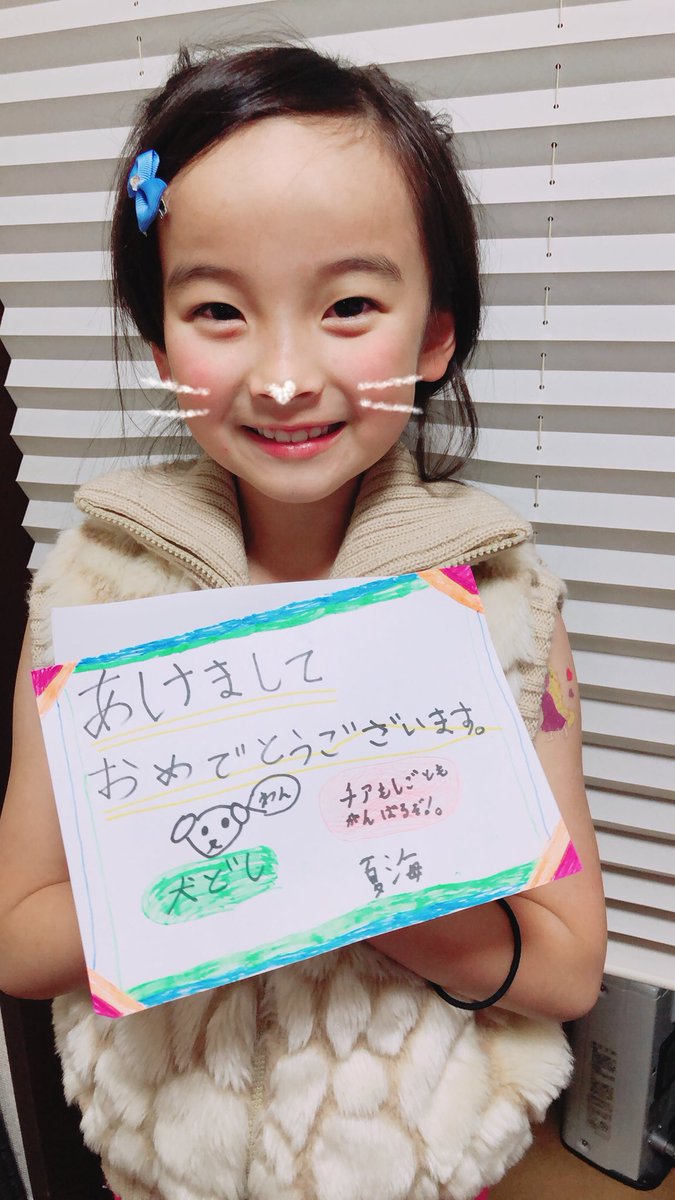 あけまして
おめでとうございます。
わん
チアもしごとも
がんばるぞ!。
犬どし
夏海